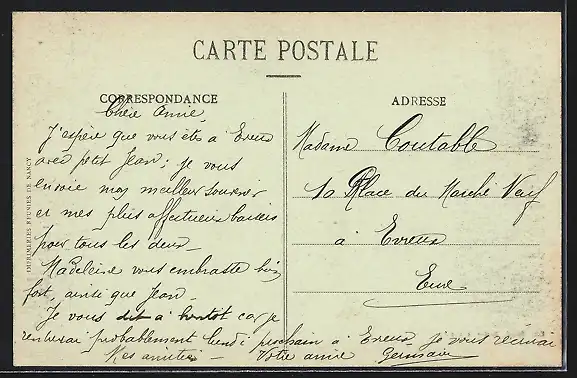 CARTE POSTALE
CORRESPONDANCE
Chère Annie,
J'espère que vous êtes à Evreux
avec petit Jean; je vous
envoie mes meilleurs souvenirs
et mes plus affectueux baisers
pour tous les deux_
Madeleine vous embrasse bien
fort, ainsi que Jean_
Je vous dit à bientôt car je
rentrerai probablement lundi prochain à Evreux je vous
Mes amitiés_ Votre amie Germaine
ADRESSE
Madame Coutable
10 Place du Marché Neuf
à Evreux
Eure
IMPRIMERIES REUNIES DE NANCY